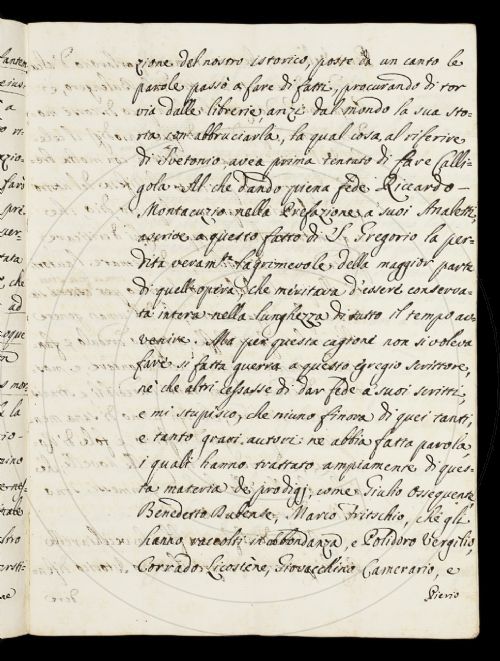 zione del nostro istorico, poste da un canto le
parole passò a fare di fatti, procurando di tor
via dalle librerie, anzi dal mondo la sua sto-
ria con abbruciarla, la qual cosa, al riferire
di Svetonio avea prima tentato di fare Calli-
gola. Al che dando piena fede Riccardo
Montacuzio nella Prefazione a suoi Analetti,
ascrive a questo fatto di S. Gregorio la per-
dita veram.te lagrimevole della maggior parte
di quell'opera, che meritava d'essere conserva-
ta intera nella lunghezza di tutto il tempo av-
venire. Ma per questa cagione non si voleva
fare si fatta guerra a questo egregio scrittore,
ne che altri cessasse di dar fede a suoi scritti,
e mi stupisco, che niuno finora di quei tanti,
e tanto gravi autori ne abbia fatta parola,
i quali hanno trattato ampiamente di ques-
ta materia de prodigj, come Giulio Ossequente
Benedetto Marco Fritschio, che gli
hanno raccolti in abbondanza, e Polidoro Vergilio,
Corrado Licostene, Giovacchino Camerario, e
Pierio